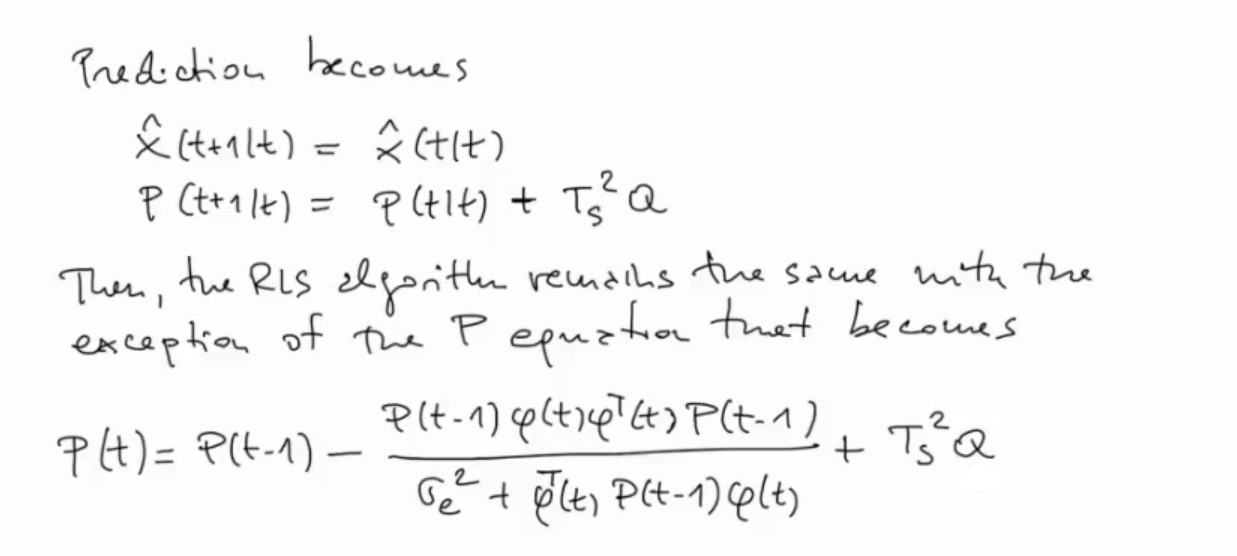 Prediction becomes
x̂(t+1|t) = x̂(t|t)
P(t+1|t) = P(t|t) + Ts² Q
Then, the RLS algorithm remains the same with the
exception of the P equation that becomes
P(t) = P(t-1) - P(t-1) φ(t) φᵀ(t) P(t-1) / (σe² + φᵀ(t) P(t-1) φ(t)) + Ts² Q